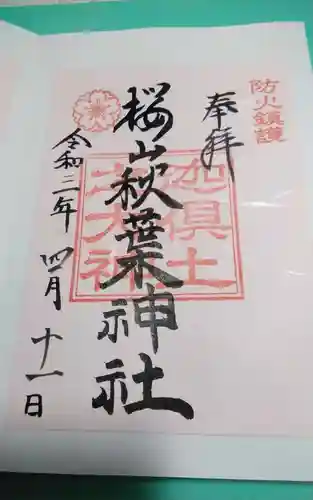 防火鎮護
奉拝
桜山秋葉神社
迦倶土
大神
令和三年四月十一日